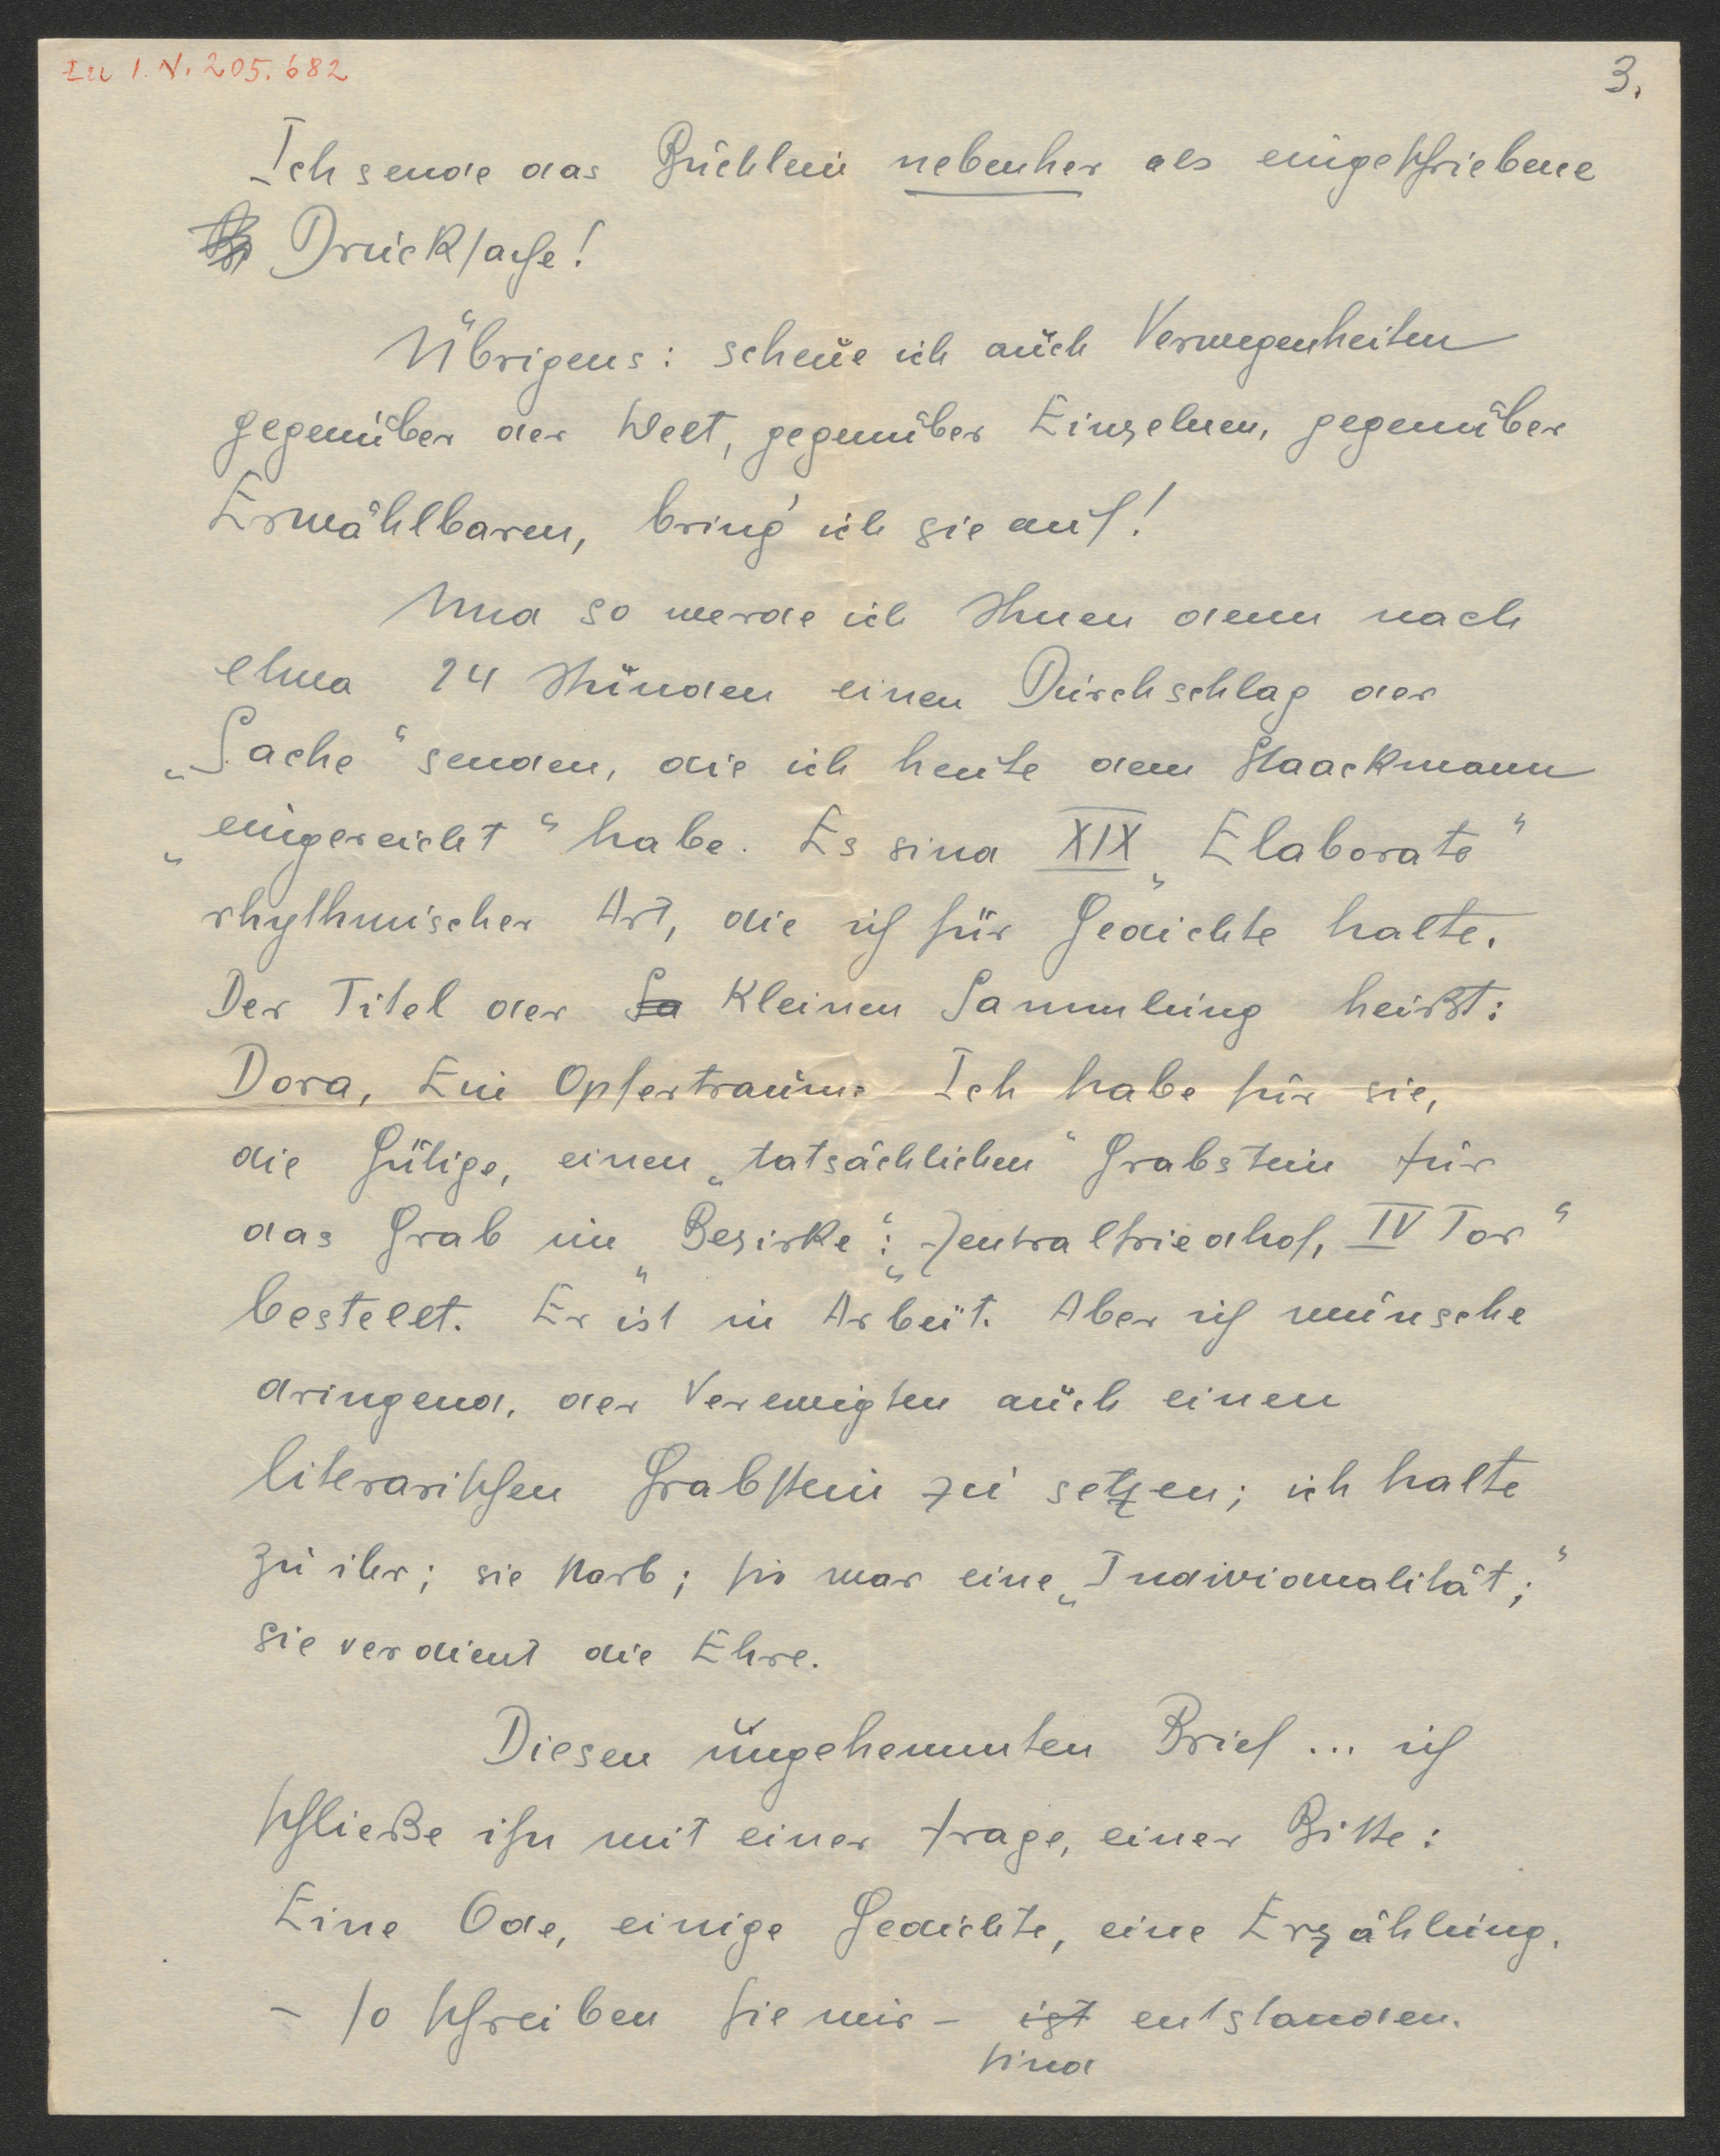 Zu I.N. 205.682
3.
Ich sende das Büchlein nebenher als eingeschriebene
Drucksache!
Übrigens: scheue ich auch Verwegenheiten
gegenüber der Welt, gegenüber Einzelnen, gegenüber
Erwählbaren, bring' ich sie auf!
Und so werde ich Ihnen denn nach
etwa 24 Stunden einen Durchschlag der
„Sache“ senden, die ich heute dem Staackmann
„eingereicht“ habe. Es sind XIX „Elaborate“
rhythmischer Art, die ich für Gedichte halte.
Der Titel der Sa kleinen Sammlung heißt:
Dora, Ein Opfertraum. Ich habe für sie,
die Gütige, einen „tatsächlichen“ Grabstein für
das Grab im „Bezirke“: „Zentralfriedhof, IV Tor“
bestellt. Er ist in Arbeit. Aber ich wünsche
dringend, der Verewigten auch einen
literarischen Grabstein zu setzen; ich halte
zu ihr; sie starb; sie war eine „Individualität;“
sie verdient die Ehre.
Diesen ungehemmten Brief ... ich
schließe ihn mit einer Frage, einer Bitte:
Eine Ode, einige Gedichte, eine Erzählung.
– so schreiben Sie mir – ist entstanden.
sind